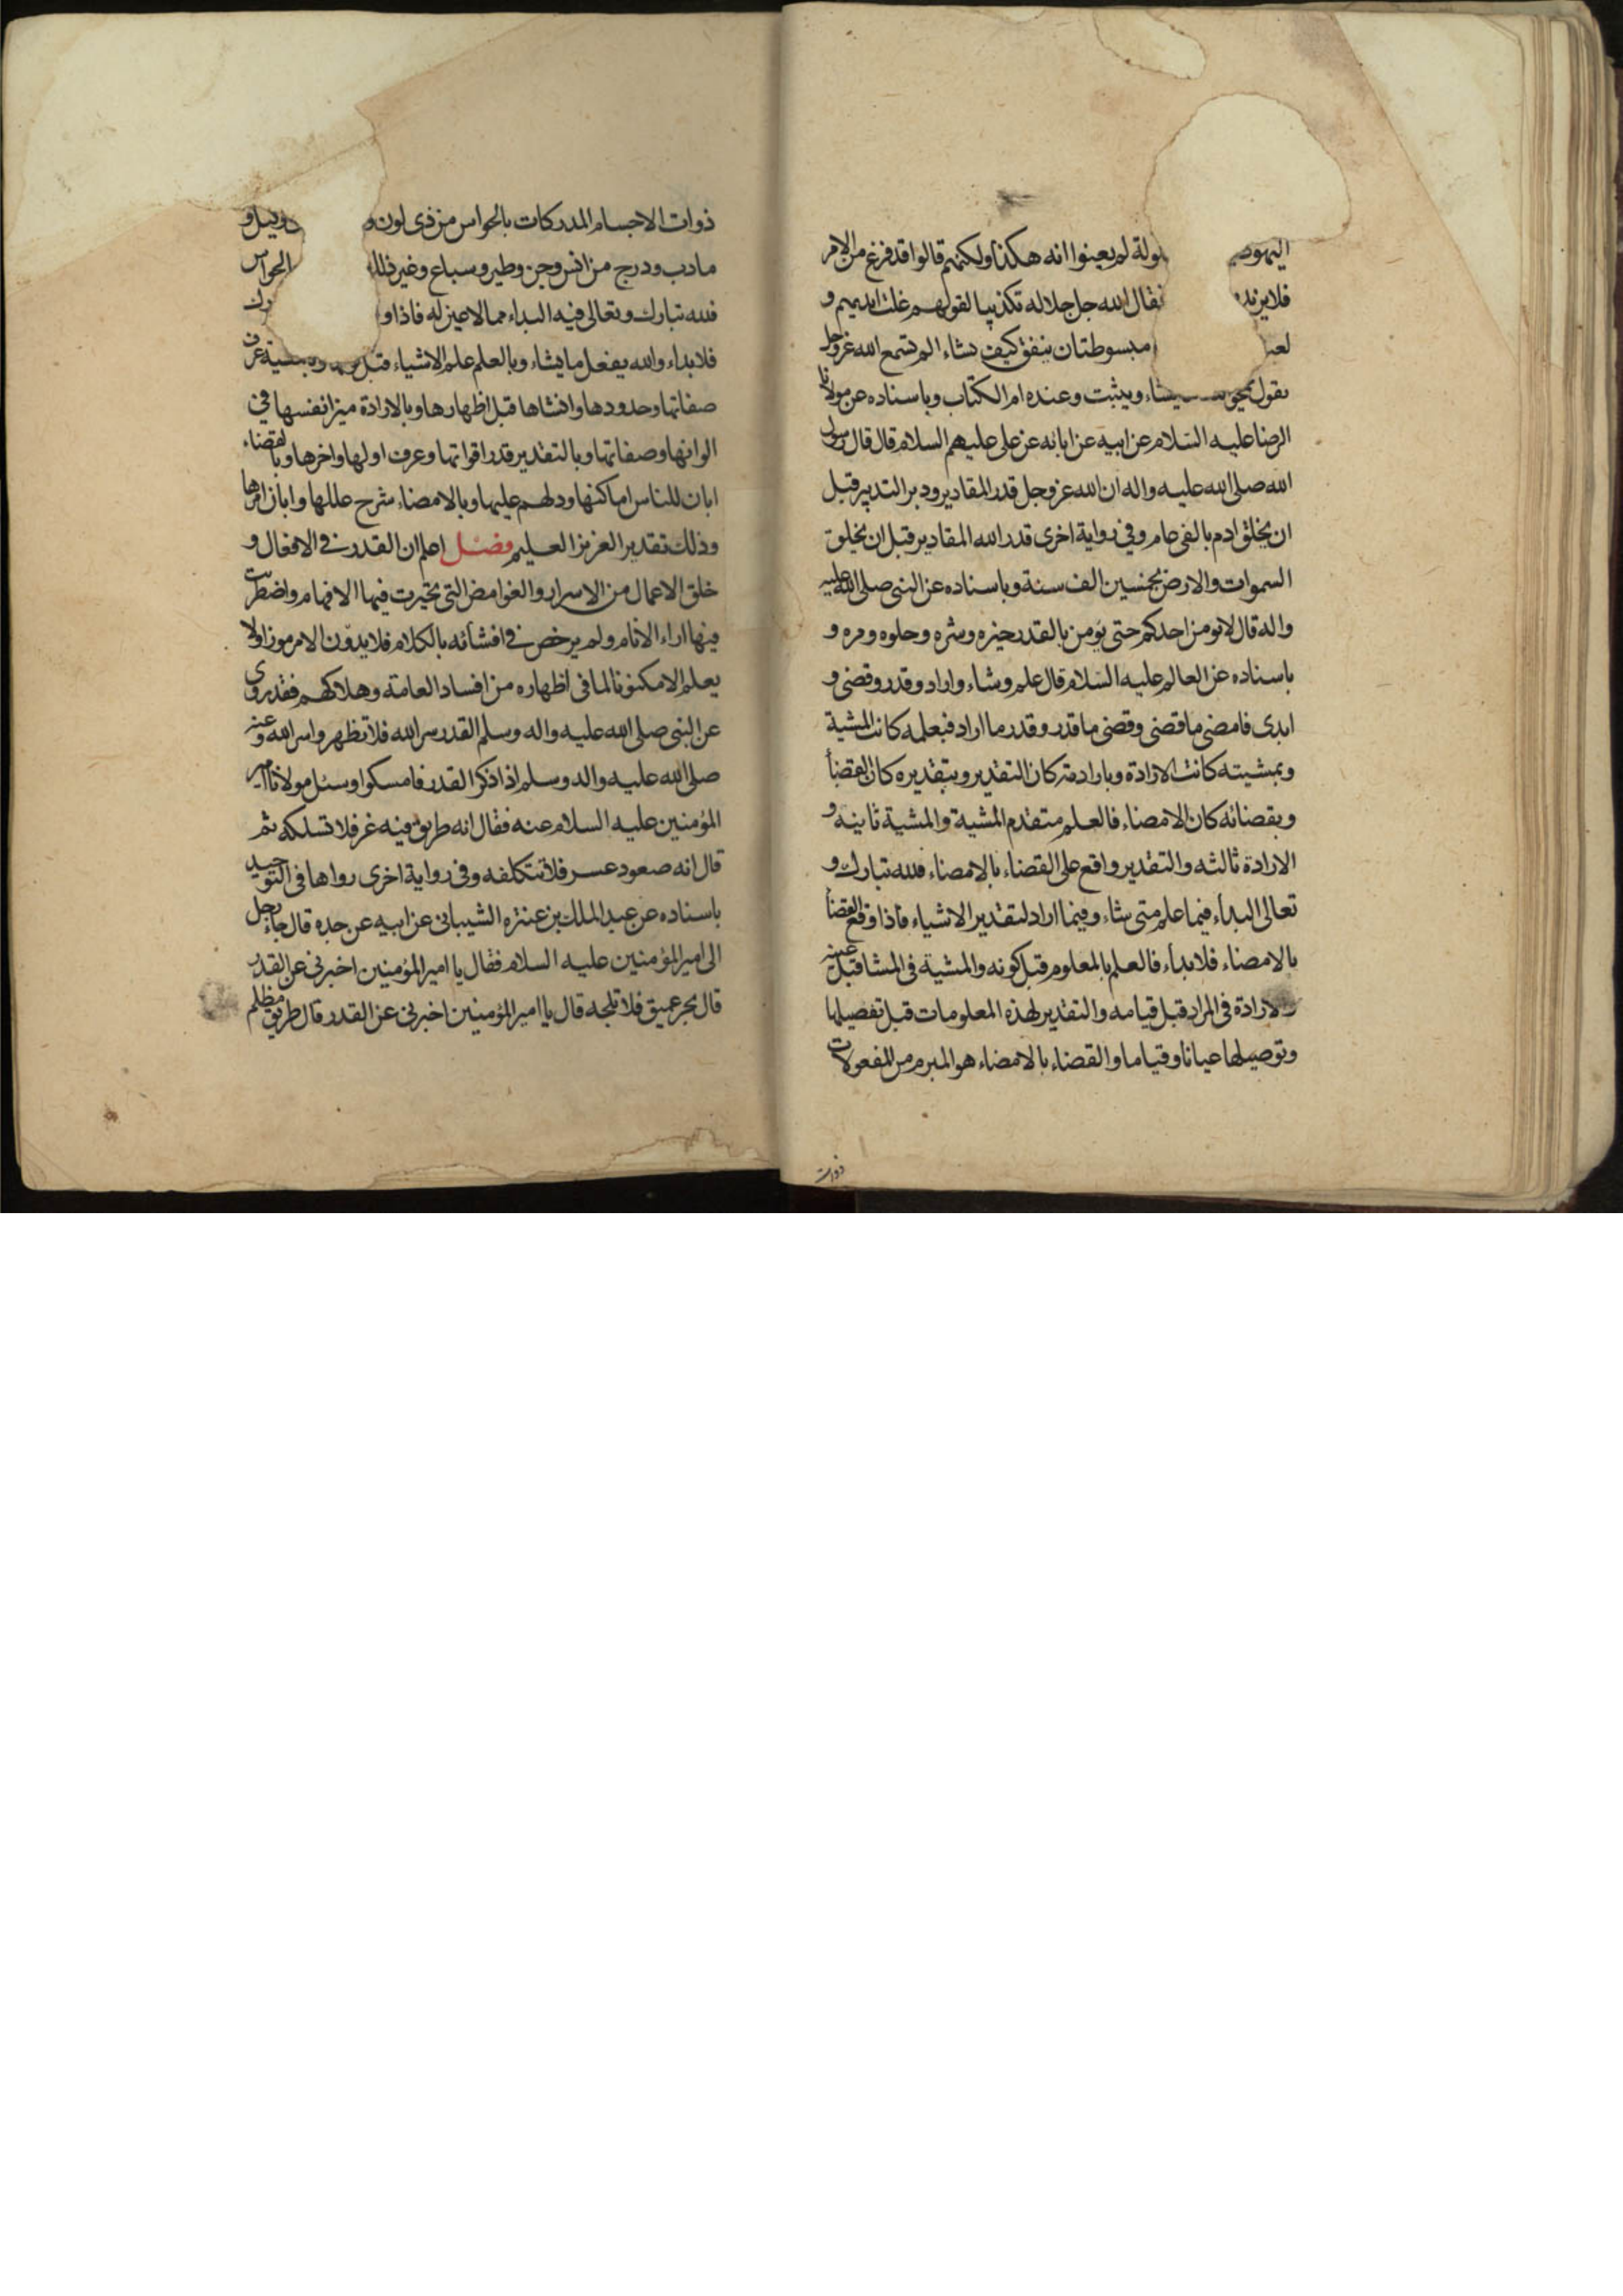 اليهود مغلولة لم يعنوا انه هكذا ولكنهم قالوا قد فرغ من الامر
فلا يزيد فقال الله جل جلاله تكذيبا لقولهم غلت ايديهم و
مبسوطتان ينفق كيف يشاء الم تسمع الله عز وجل
يقول يمحو يشاء ويثبت وعنده ام الكتاب وباسناده عن مولانا
الرضا عليه السلام عن ابيه عن ابائه عن على عليهم السلام قال قال رسول
الله صلى الله عليه واله ان الله عز وجل قدر المقادير ودبر التدبير قبل
ان يخلق ادم بالفى عام وفى رواية اخرى قدر الله المقادير قبل ان يخلق
السموات والارض بخمسين الف سنة وباسناده عن النبى صلى الله عليه
واله قال لا يومن احدكم حتى يؤمن بالقدر خيره وشره وحلوه ومره و
باسناده عن العالم عليه السلام قال علم وشاء واراد وقدر وقضى و
ابدى فامضى ما قضى وقضى ما قدر وقدر ما اراد فبعلمه كانت المشية
وبمشيته كانت الارادة وبارادته كان التقدير وبتقديره كان القضاء
وبقضائه كان الامضاء فالعلم متقدم المشية والمشية ثانيه و
الارادة ثالثه والتقدير واقع على القضاء بالامضاء فلله تبارك و
تعالى البداء فيما علم متى شاء وفيما اراد لتقدير الاشياء فاذا وقع القضاء
بالامضاء فلا بداء فالعلم بالمعلوم قبل كونه والمشية فى المشا قبل عينه
والارادة فى المراد قبل قيامه والتقدير لهذه المعلومات قبل تفصيلها
وتوصيلها عيانا وقياما والقضاء بالامضاء هو المبرم من المفعولات
ذوات
ذوات الاجسام المدركات بالحواس من ذى لون و وكيل و
مادب ودرج من انس وجن وطير وسباع وغير ذلك الحواس
فلله تبارك وتعالى فيه البداء مما لا عين له فاذا و
فلا بداء والله يفعل ما يشاء وبالعلم علم الاشياء قبل وبمشية عرف
صفاتها وحدودها وانشاها قبل اظهارها وبالارادة ميز انفسها فى
الوانها وصفاتها وبالتقدير قدر اقواتها وعرف اولها واخرها وبالقضاء
ابان للناس اماكنها ودلهم عليها وبالامضاء شرح عللها وابان امرها
وذلك تقدير العزيز العليم فصل اعلم ان القدر فى الافعال و
خلق الاعمال من الاسرار والغوامض التى تحيرت فيها الافهام واضطربت
فيها اراء الانام ولم يرخص فى افشائه بالكلام فلا يدوّن الا مرموزا ولا
يعلم الا مكنونا لما فى اظهاره من افساد العامة وهلاكهم فقد روى
عن النبى صلى الله عليه واله وسلم القدر سر الله فلا تظهروا سر الله وعنه
صلى الله عليه واله وسلم اذا ذكر القدر فامسكوا وسئل مولانا امير
المؤمنين عليه السلام عنه فقال انه طريق فيه غر فلا تسلكه ثم
قال انه صعود عسر فلا تتكلفه وفى رواية اخرى رواها فى التوحيد
باسناده عن عبد الملك بن عنترة الشيبانى عن ابيه عن جده قال جاء رجل
الى امير المؤمنين عليه السلام فقال يا امير المؤمنين اخبرنى عن القدر
قال بحر عميق فلا تلجه قال يا امير المؤمنين اخبرنى عن القدر قال طريق مظلم